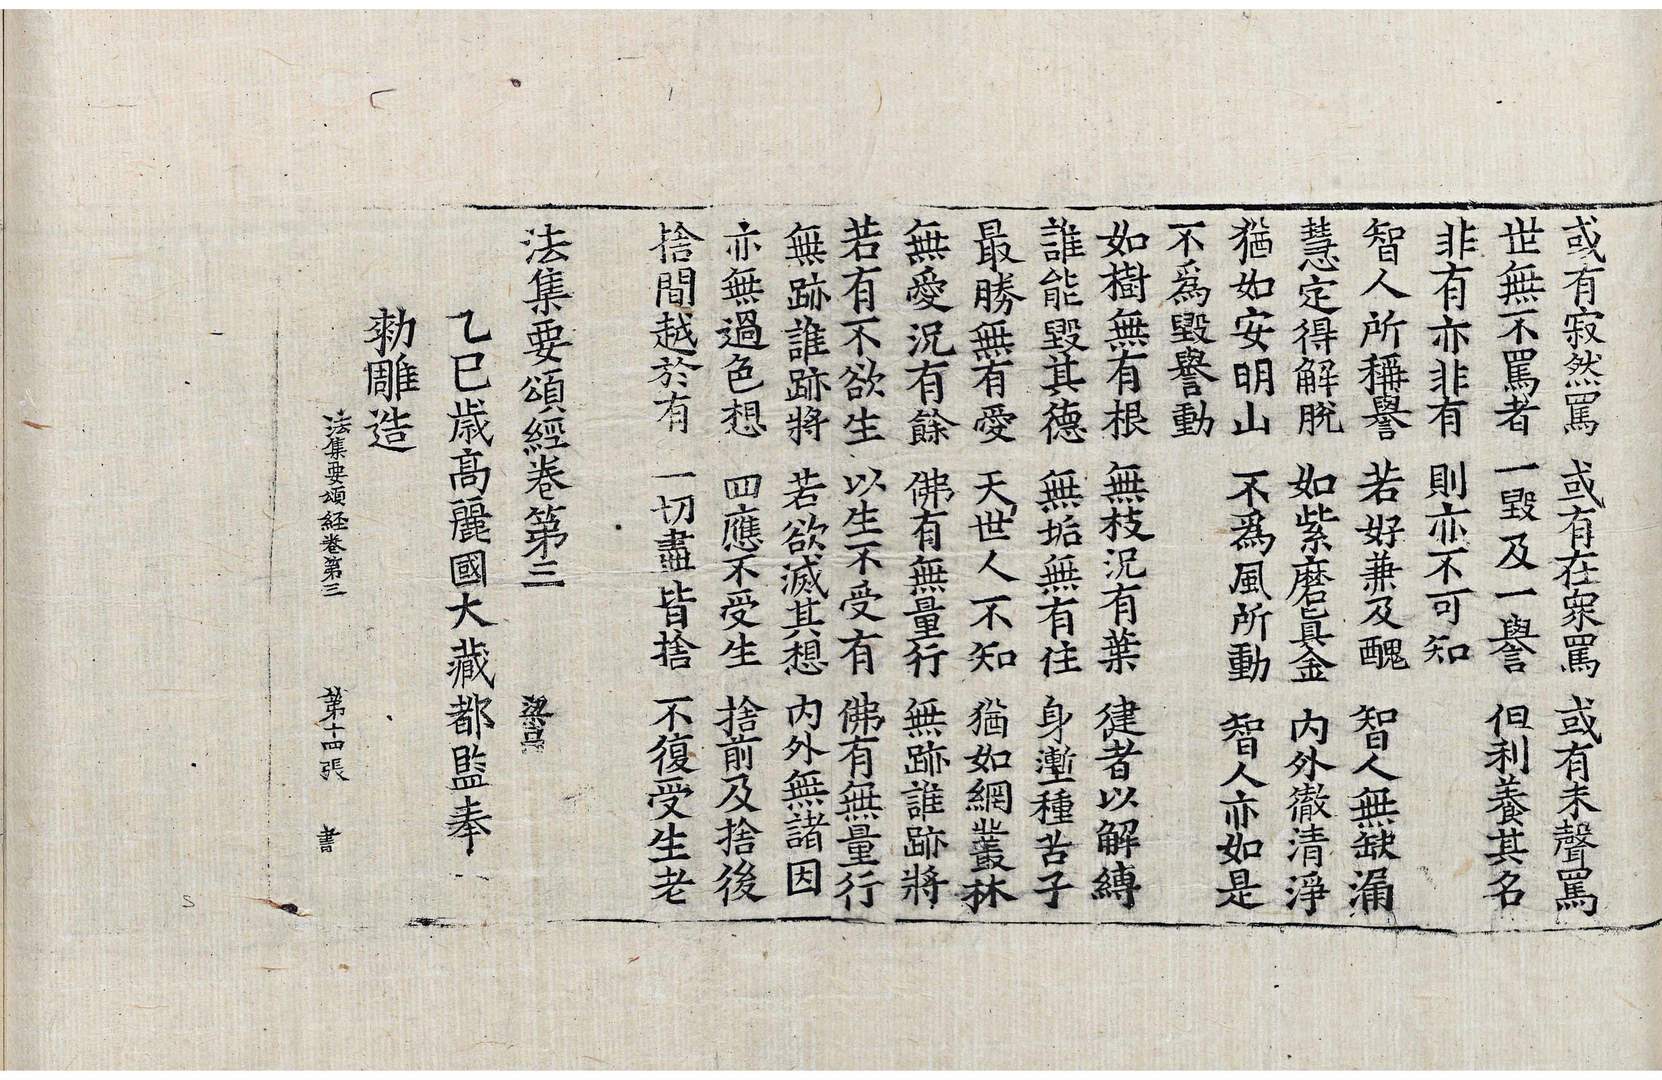 或有寂然罵　或有在衆罵　或有未聲罵
世無不罵者　一毀及一譽　但利養其名
非有亦非有　則亦不可知
智人所稱譽　若好兼及醜　智人無缺漏
慧定得解脫　如紫磨眞金　內外徹清淨
猶如安明山　不爲風所動　智人亦如是
不爲毀譽動
如樹無有根　無枝況有葉　健者以解縛
誰能毀其德　無垢無有住　身漸種苦子
最勝無有愛　天世人不知　猶如網叢林
無愛況有餘　佛有無量行　無跡誰跡將
若有不欲生　以生不受有　佛有無量行
無跡誰跡將　若欲滅其想　內外無諸因
亦無過色想　四應不受生　捨前及捨後
捨間越於有　一切盡皆捨　不復受生老
法集要頌經卷第三　梁
乙巳歳高麗國大藏都監奉
勑雕造
法集要頌経卷第三　第十四張　書